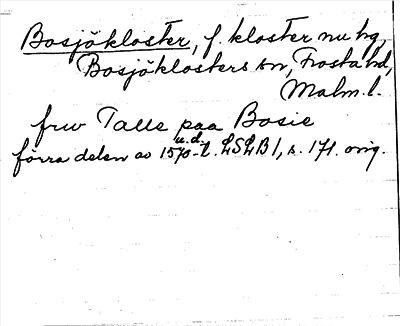 Bosjökloster, f. kloster nu hg,
Bosjöklosters sn, Frosta hd,
Malm. l.
frw Talle paa Bosie
u.d.
förra delen av 1570-t. LSLB 1, s. 171. orig.